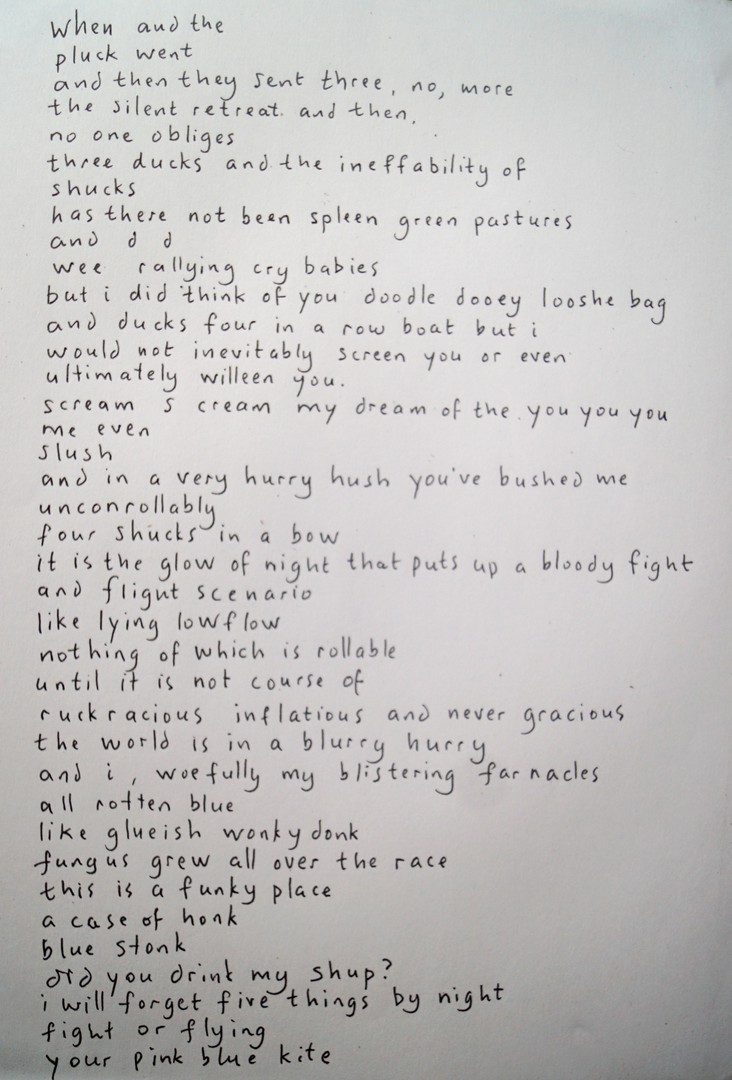 When and the
pluck went
and then they sent three, no, more
the silent retreat. and then,
no one obliges
three ducks and the ineffability of
shucks
has there not been spleen green pastures
and d d
wee rallying cry babies
but i did think of you doodle dooey looshe bag
and ducks four in a row boat but i
would not inevitably screen you or even
ultimately willeen you.
scream s cream my dream of the you you you
me even
slush
and in a very hurry hush you've bushed me
unconrollably
four shucks in a bow
it is the glow of night that puts up a bloody fight
and flight scenario
like lying lowflow
nothing of which is rollable
until it is not course of
ruckracious inflatious and never gracious
the world is in a blurry hurry
and i, woefully my blistering farnacles
all rotten blue
like glueish wonky donk
fungus grew all over the race
this is a funky place
a case of honk
blue stonk
did you drink my shup?
i will forget five things by night
fight or flying
your pink blue kite